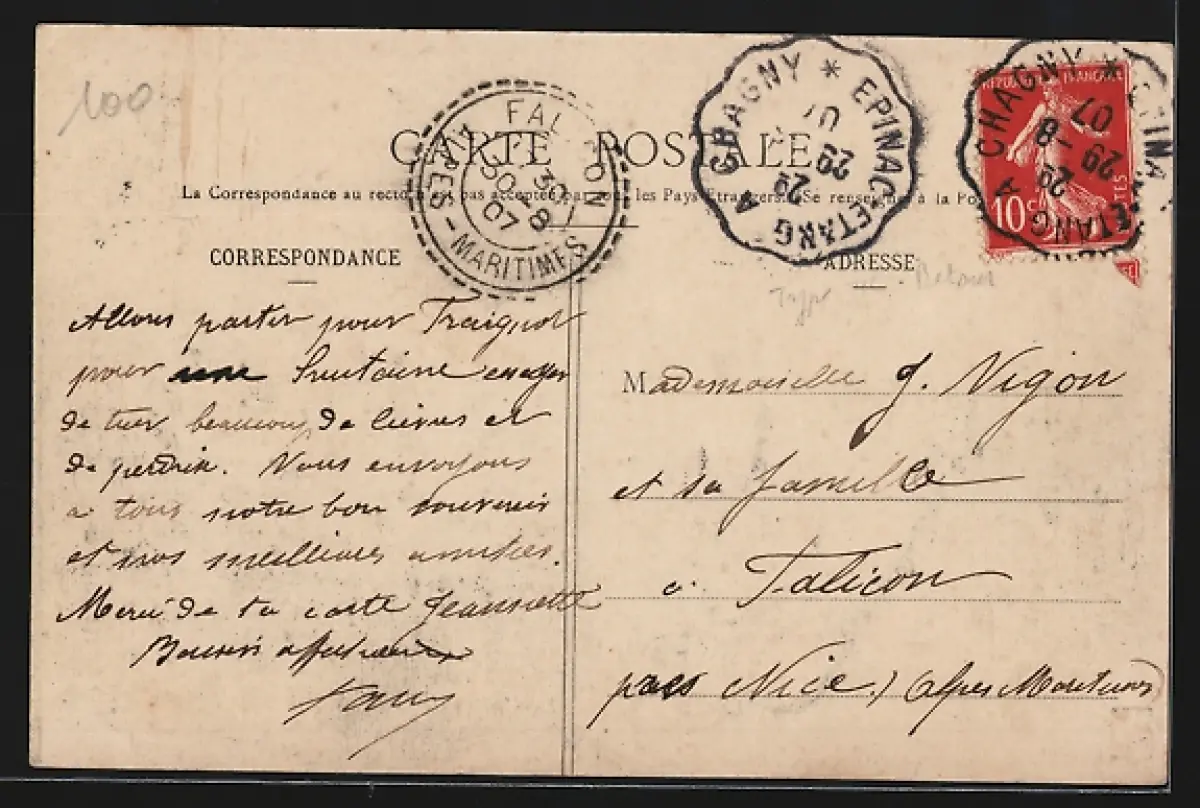 100
CARTE POSTALE
La Correspondance au recto n'est pas acceptée par tous les Pays Étrangers. (Se renseigner à la Po
FALICON
30 - 8
07
ALPES-MARITIMES
CHAGNY * EPINAC-ETANG A
29
29
07
REPUBLIQUE FRANCAISE
10c
POSTES
CHAGNY * EPINA ETANG A
29
29 -8
07
CORRESPONDANCE
Allons partir pour
pour une
de tuer beaucoup de lièvres et
de perdrix. Nous envoyons
a tous notre bon souvenir
et nos meilleures amitiés.
Merci de ta carte Jeannette
Baisers
ADRESSE
Type
Mademoiselle J. Nigon
et sa famille
à Falicon
près Nice. (Alpes Maritimes)